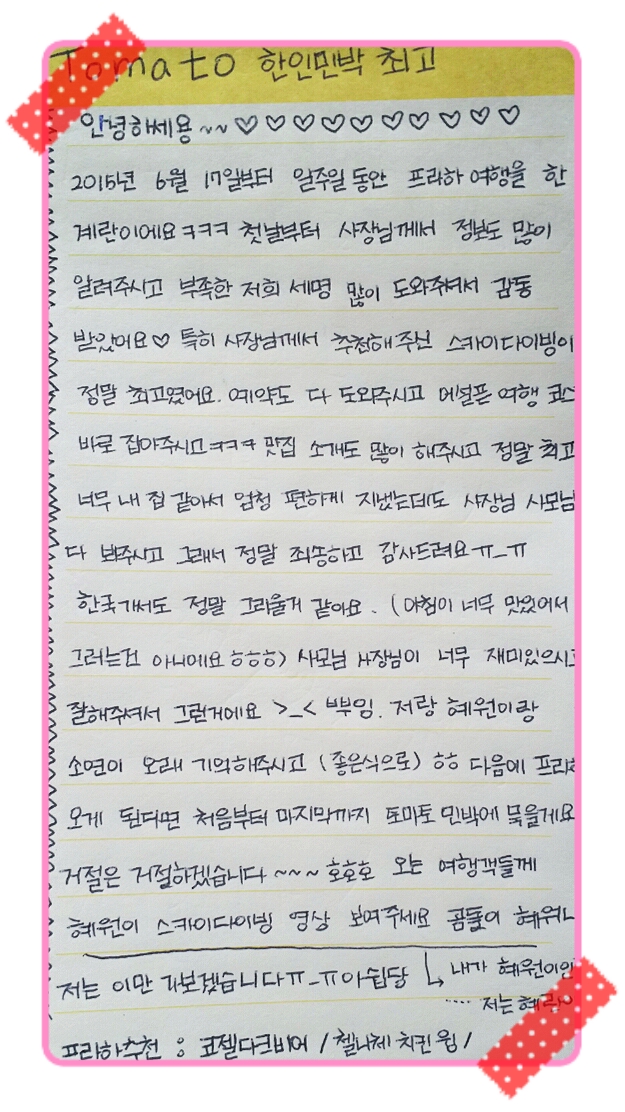 Tomato 한인민박 최고
안녕하세용 ~~ ♡♡♡♡♡♡♡♡♡♡
2015년 6월 17일부터 일주일 동안 프라하 여행을 한
계란이에요 ㅋㅋㅋ 첫날부터 사장님께서 정보도 많이
알려주시고 부족한 저희 세명 많이 도와주셔서 감동
받았어요♡ 특히 사장님께서 추천해주신 스카이다이빙이
정말 최고였어요. 예약도 다 도와주시고 어설픈 여행 코스
바로 잡아주시고ㅋㅋㅋ 맛집 소개도 많이 해주시고 정말 최고
너무 내 집 같아서 엄청 편하게 지냈는데도 사장님 사모님
다 봐주시고 그래서 정말 죄송하고 감사드려요 ㅠ_ㅠ
한국가서도 정말 그리울거 같아요. (아침이 너무 맛있어서
그러는건 아니에요 ㅎㅎㅎ) 사모님 사장님이 너무 재미있으시고
잘해주셔서 그런거에요 >_< 뿌뿌잉. 저랑 혜원이랑
소연이 오래 기억해주시고 (좋은식으로) ㅎㅎ 다음에 프라하
오게 된다면 처음부터 마지막까지 토마토 민박에 묵을게요
거절은 거절하겠습니다 ~~~ 호호호 오는 여행객들께
혜원이 스카이다이빙 영상 보여주세요 곰돌이 혜원
저는 이만 가보겠습니다ㅠ_ㅠ아쉽당 ↳ 내가 혜원이인
..... 저는 혜란
프라하추천 : 코젤다크비어 / 첼니체 치킨윙 /